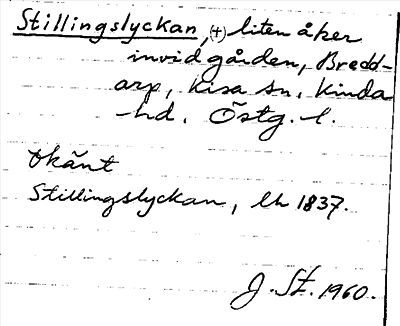 Stillingslyckan, (+) liten åker
invid gården, Bredd-
arp, Kisa sn, Kinda
hd. Östg. l.
okänt
Stillingslyckan, lh 1837.
J. St. 1960.